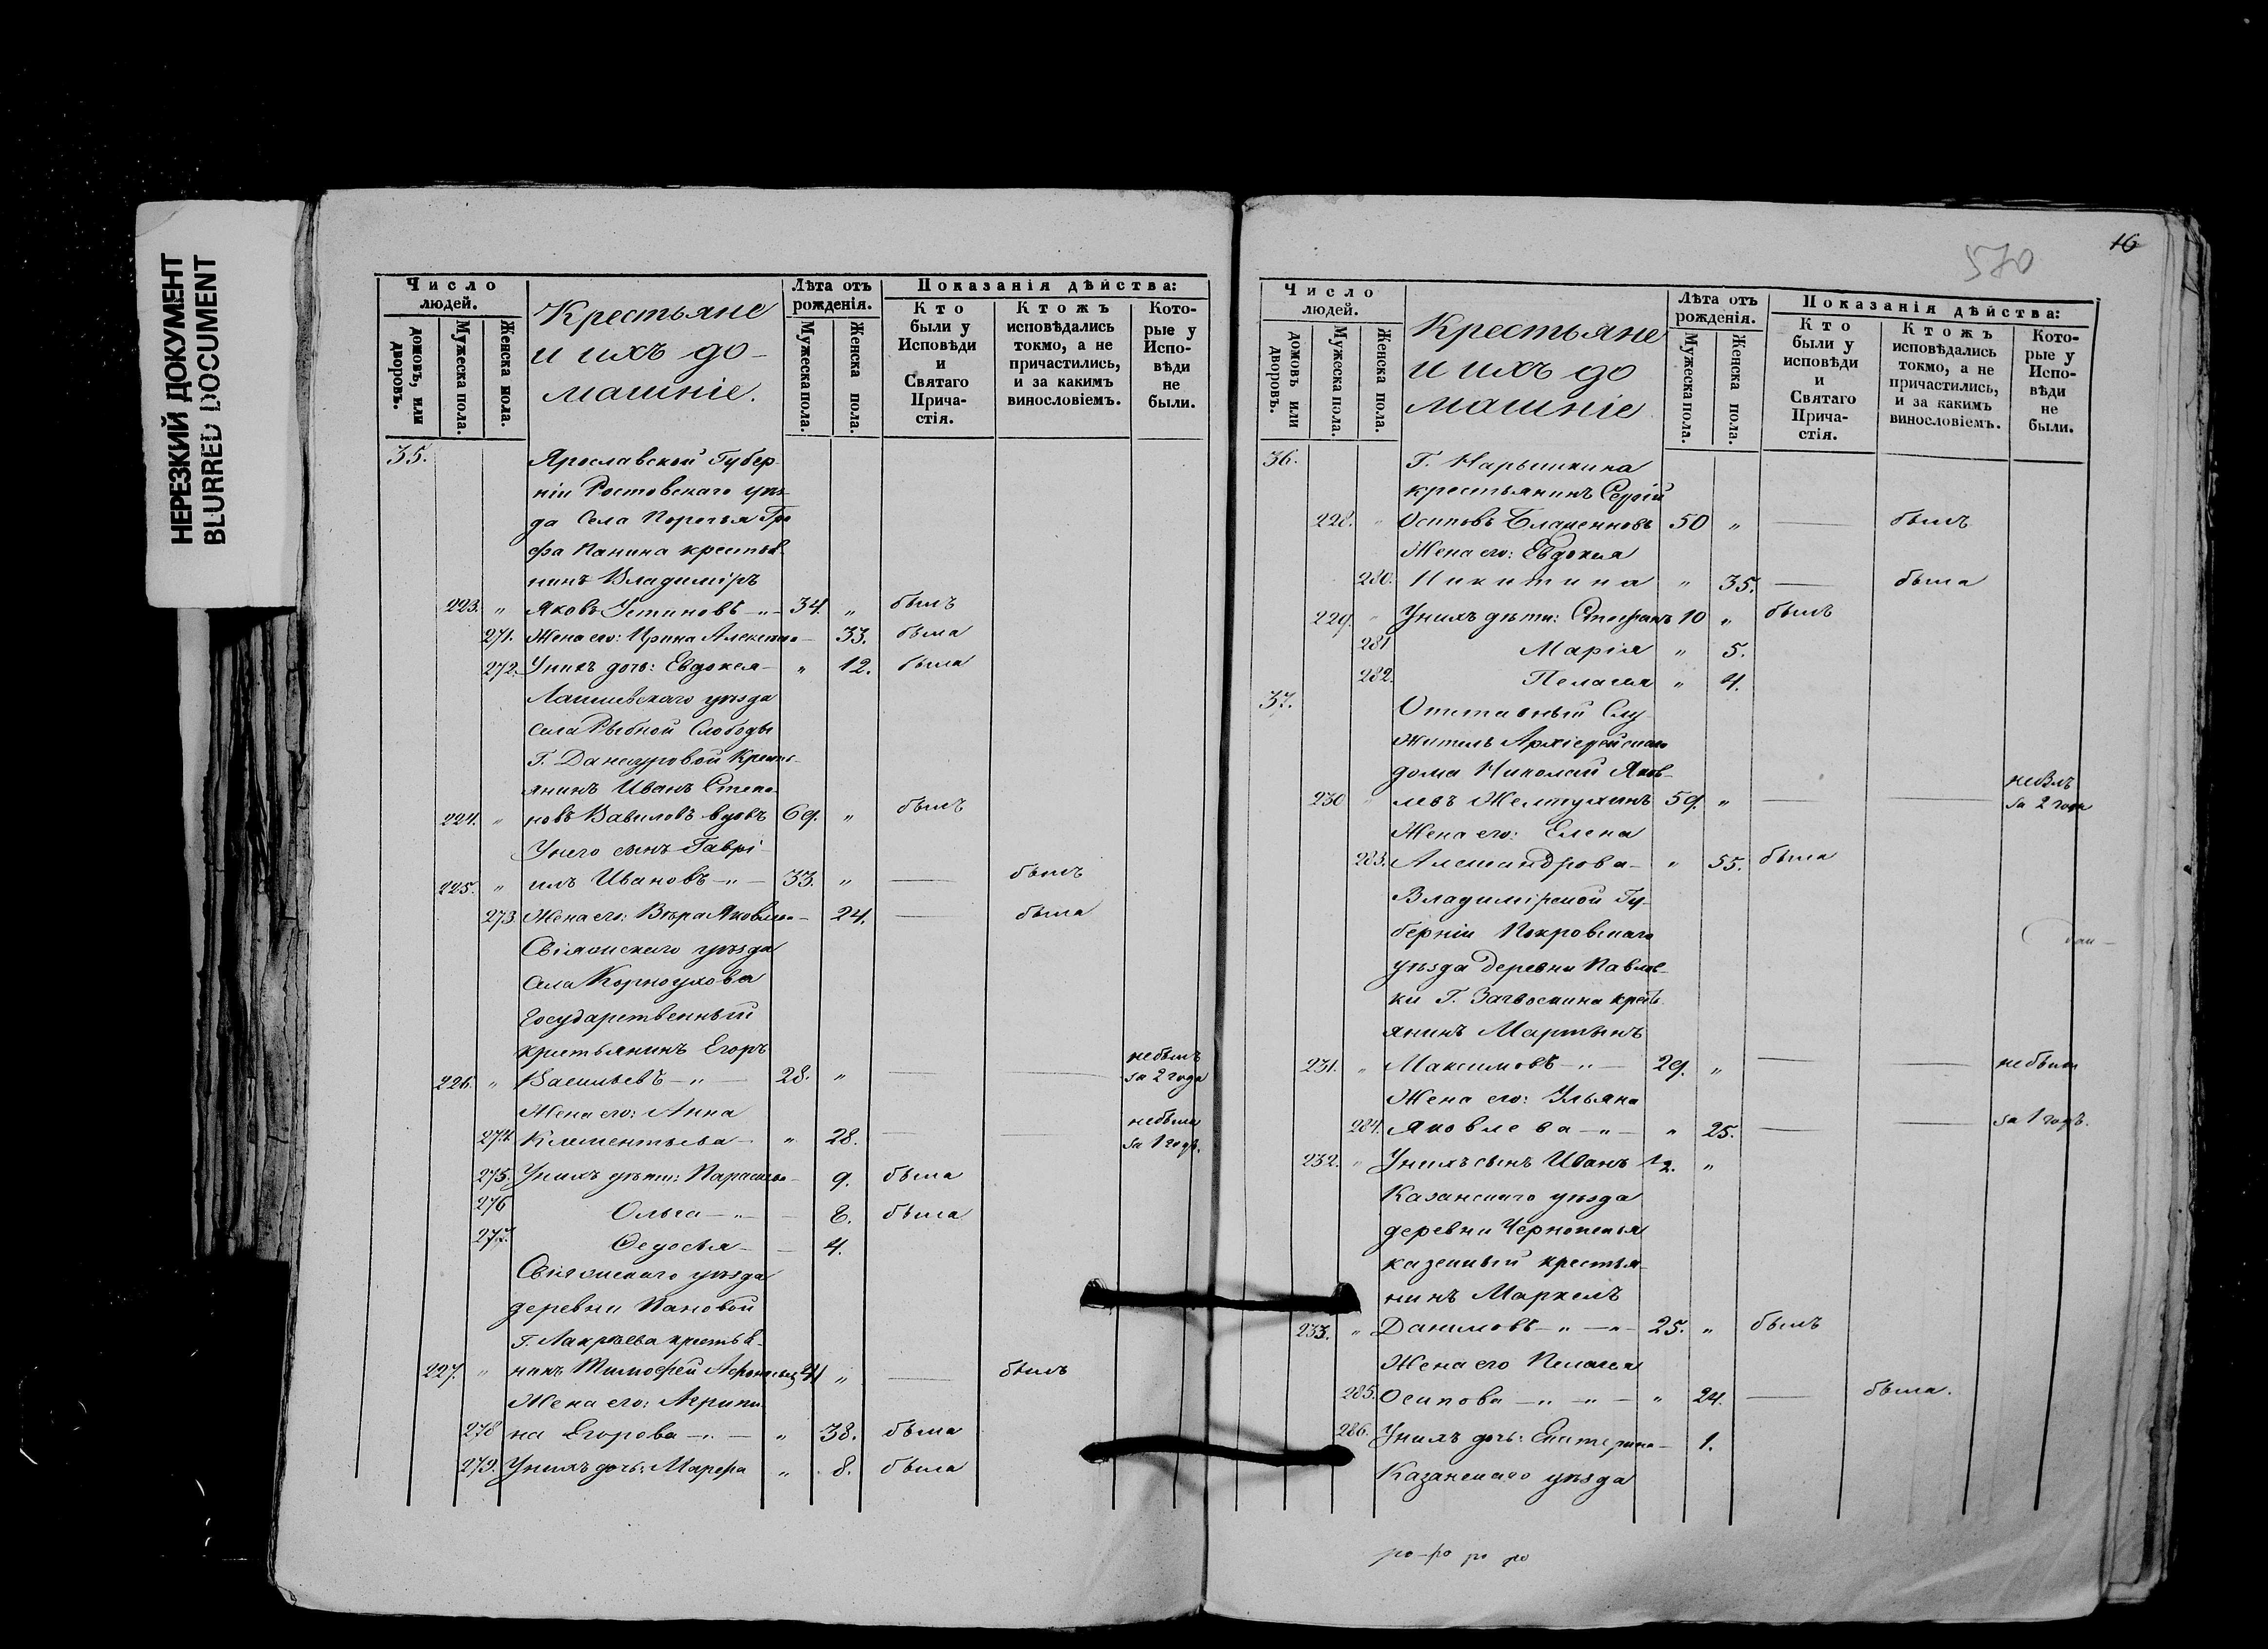 НЕРЕЗКИЙ ДОКУМЕНТ
BLURRED DOCUMENT
Число людей.
домовъ, или дворовъ.
Мужеска пола.
Женска пола.
Крестьяне
и ихъ до-
машніе.
Лѣта отъ рожденія.
Мужеска пола.
Женска пола.
Показанія дѣйства:
Кто были у Исповѣди и Святаго Прича-стія.
Ктожъ исповѣдались токмо, а не причастились, и за какимъ винословіемъ.
Кото-рые у Испо-вѣди не были.
35. Ярославской Губер-
ніи Ростовскаго уѣз-
да Села Поречья Гра
фа Панина крестья-
нинъ Владиміръ
223. " Яковъ Устиновъ -"- 34. " былъ
271. Жена его: Ирина Алексѣева - 33. была
272. У нихъ дочь: Евдокея - " 12. была
Лаишевскаго уѣзда
Села Рыбной Слободы
Г. Данауровой Кресть-
янинъ Иванъ Степа-
224. " новъ Вавиловъ вдовъ 69. " былъ
У него сынъ Гаврі-
225. " илъ Ивановъ -"- 33. " — былъ
273. Жена его: Вѣра Яковлева - 24. — была
Свіяжскаго уѣзда
Села Корноухова
Государственный
крестьянинъ Егоръ
небылъ
226. " Васильевъ -"- 28. " — — за 2 года
Жена его: Анна
небыла
274. Клементьева - " 28. — за 1 годъ.
275. У нихъ дѣти: Парасковья - 9. была
276 Ольга -"- 8. была
277. Ѳедосья - 4.
Свіяжскаго уѣзда
деревни Пановой
Г. крестья-
227. " нинъ Тимофей Афонасьевъ 41 " — былъ
Жена его: Агрипи-
278 на Егорова -"- " 38. была
279. У нихъ дочь: Марфа " 8. была
570
16
Число людей.
домовъ или дворовъ.
Мужеска пола.
Женска пола.
Крестьяне
и ихъ до
машніе
Лѣта отъ рожденія.
Мужеска пола.
Женска пола.
Показанія дѣйства:
Кто были у исповѣди и Святаго Прича-стія.
Ктожъ исповѣдались токмо, а не причастились, и за какимъ винословіемъ.
Кото-рые у Испо-вѣди не были.
36. Г. Нарышкина
крестьянинъ Сергій
228. " Осиповъ 50 " — былъ
Жена его: Евдокея
280. Никитина " 35. — была
229. " У нихъ дѣти: Стефанъ 10 " былъ
281 Марія " 5.
282. Пелагея " 4.
37. Отставный Слу
житель Архіерейскаго
дома Николай Яков-
небылъ
230 " левъ Желтухинъ 59. " — — за 2 года
Жена его: Елена
283. Александрова - " 55. была
Владимірской Гу-
берніи Покровскаго
уѣзда деревни Павлов-
ки Г. крестъ-
янинъ Мартынъ
231. " Максимовъ -"- 29. " — — небыли
Жена его: Ульяна
284. Яковлева -"- " 25. — — за 1 годъ.
232. " У нихъ сынъ Иванъ 1/2. "
Казанскаго уѣзда
деревни Чернопенья
казенный крестья-
нинъ Маркелъ
233. " Даниловъ -"-"- 25. " былъ
Жена его Пелагея
285. Осипова -"-"- " 24. — была.
286. У нихъ дочь: Екатерина - 1.
Казанскаго уѣзда
ро-ро ро ро